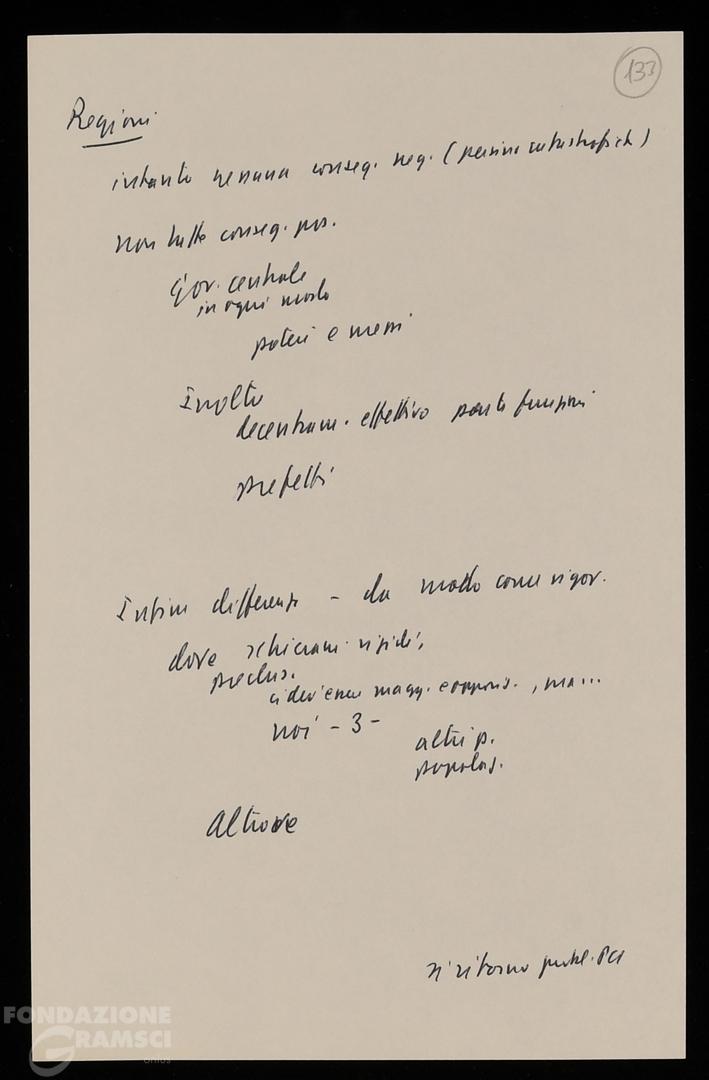 133
Regioni
intanto nessuna conseg. neg. (persino catastrofich)
non tutte conseg. pos.
Gov. centrale
in ogni modo
poteri e mezzi
Inoltre
decentram. effettivo funzioni
prefetti
Infine differenze - da modo come si gov.
dove schieram. rigidi,
preclus.
ci dev'essere magg. e oppos., ma...
noi - 3 -
altri p.
popolaz.
Altrove
si ritorna probl. PCI
FONDAZIONE
GRAMSCI
onlus